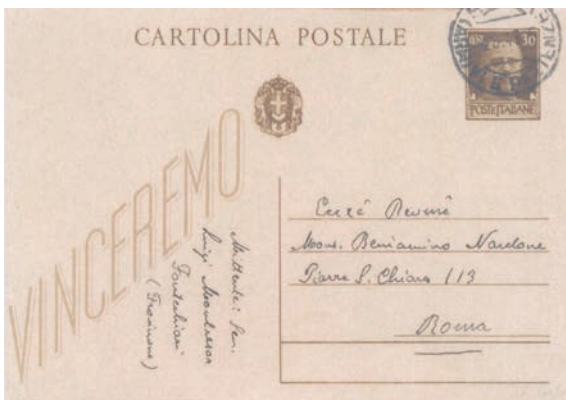 CARTOLINA POSTALE
30
POSTE ITALIANE
VINCEREMO
Mittente: Sen.
Luigi Montresor
Fontechiari
(Frosinone)
Ecc.za Rev.ma
Mons. Beniamino Nardone
Piazza S. Chiara 113
Roma